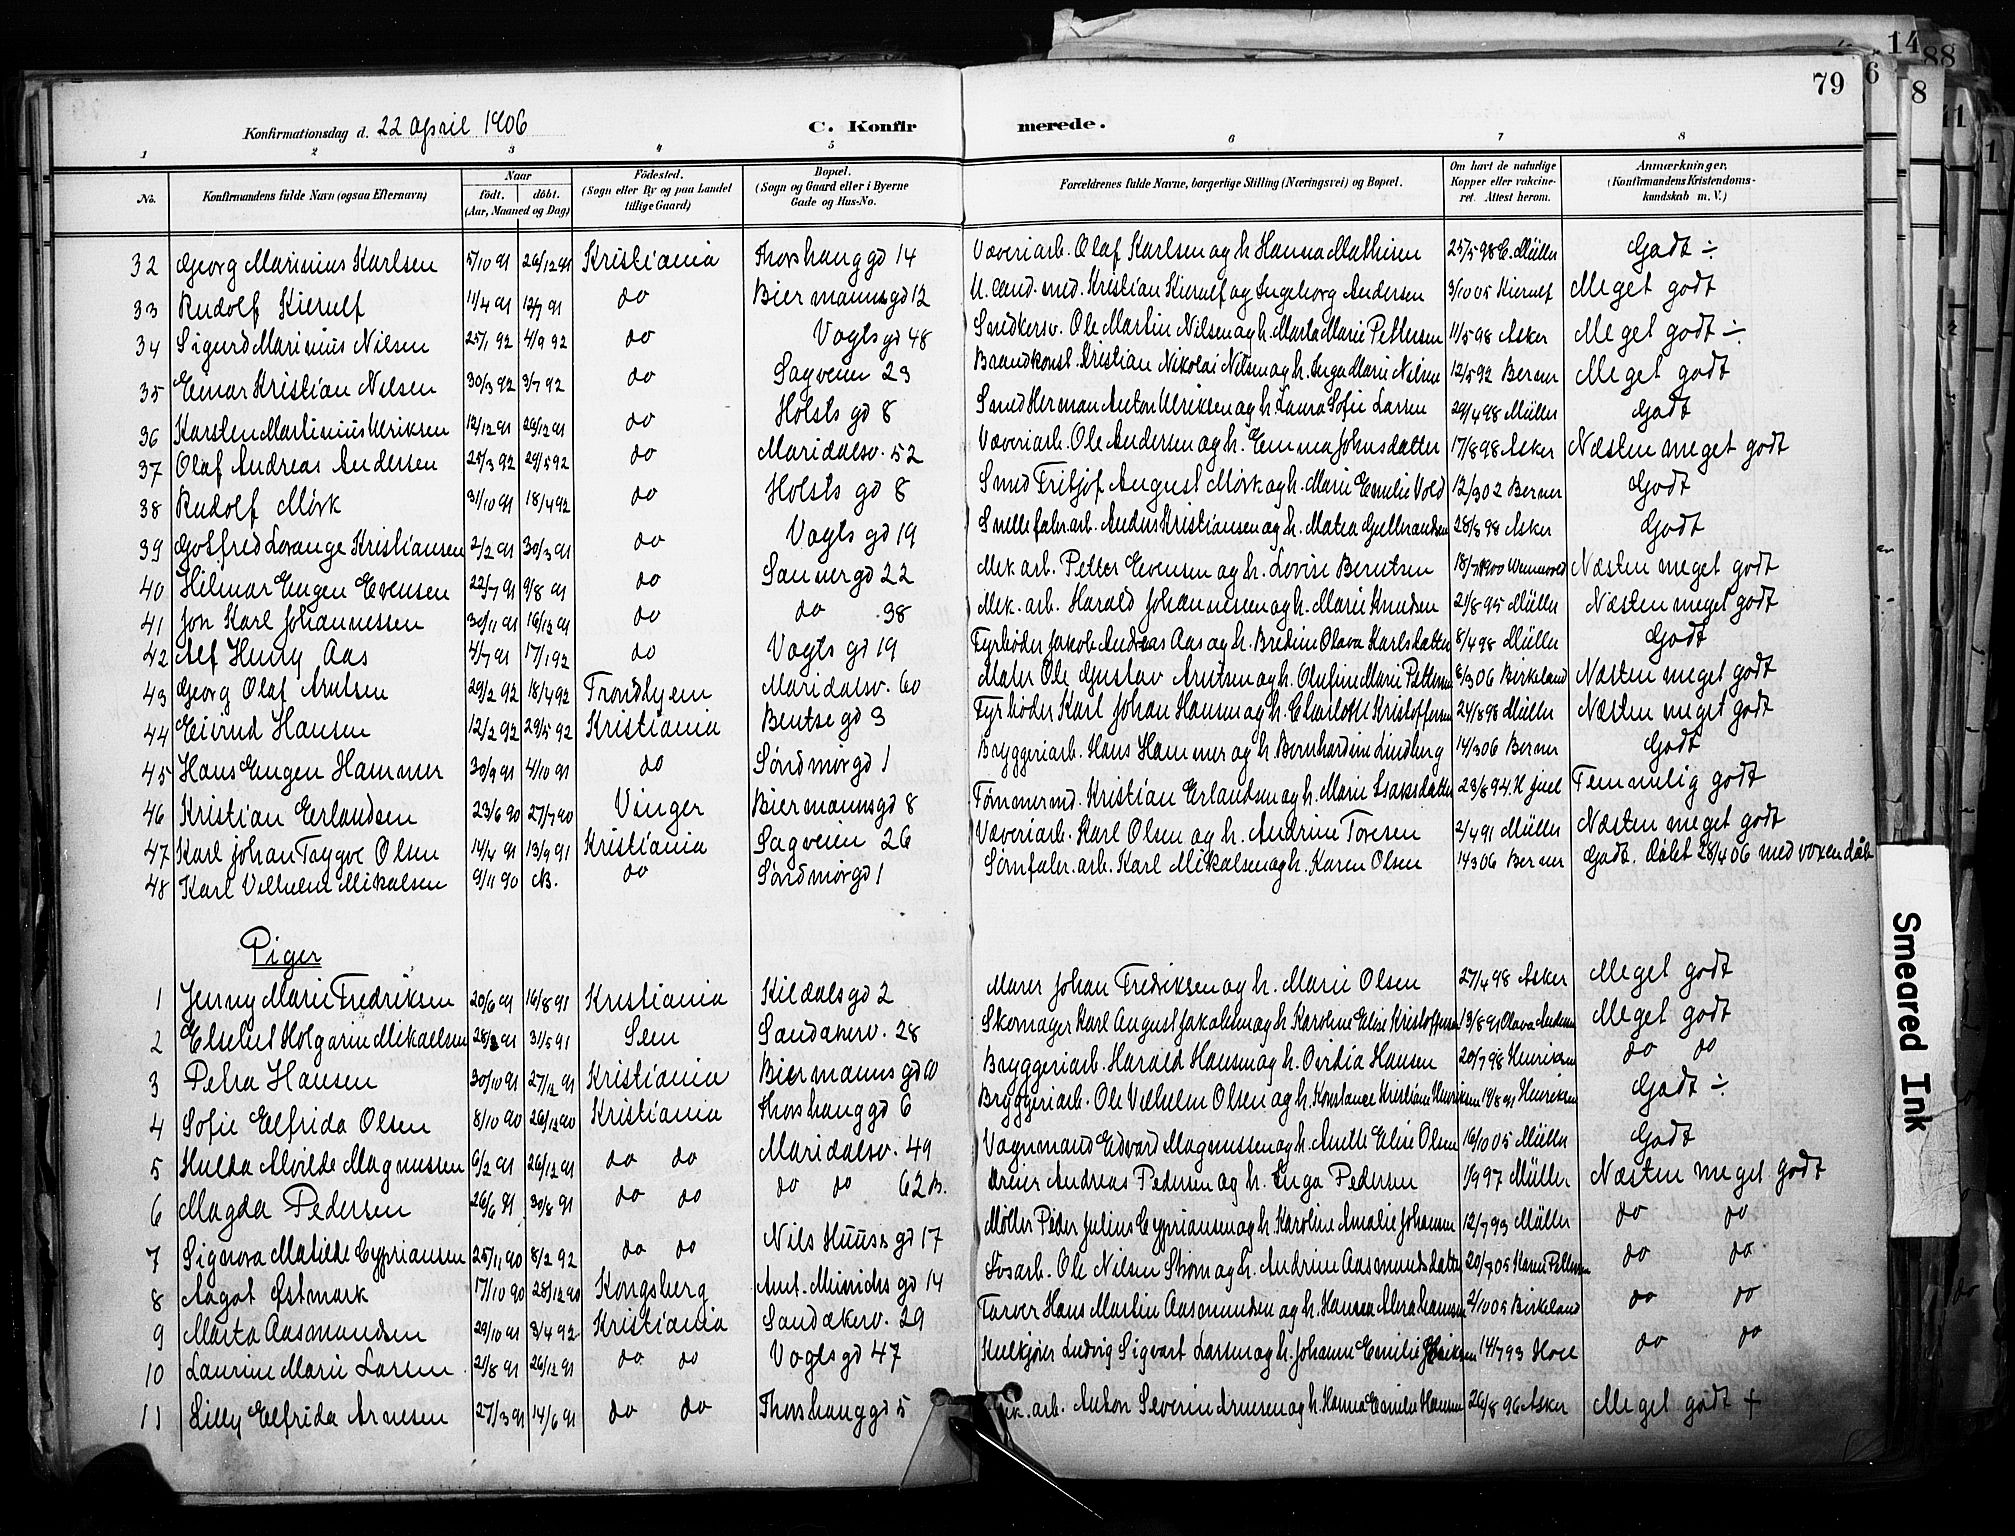 79
14
88
6
8
11
1
Konfirmationsdag d. 22 April 1906 C. Konfirmerede.
1 2 3 4 5 6 7 8
No. Konfirmandens fulde Navn (ogsaa Efternavn) Naar født. døbt. (Aar, Maaned og Dag) Födested. (Sogn eller By og paa Landet tillige Gaard) Bopæl. (Sogn og Gaard eller i Byerne Gade og Hus-No. Forældrenes fulde Navne, borgerlige Stilling (Næringsvei) og Bopæl. Om havt de naturlige Kopper eller vakcineret. Attest herom. Anmærkninger. (Konfirmandens Kristendomskundskab m. V.)
32 Georg Marinius Karlsen 5/10 91 26/12 91 Kristiania Thorshauggd 14 Væveriarb. Olaf Karlsen og h. Hanna Mathisen 25/5 98 C. Müller Godt ÷
33 Rudolf Kierulf 11/4 91 12/7 91 do Biermannsgd 12 U. Cand. med. Kristian Kierulf og Ingeborg Andersen 3/10 05 Kierulf Meget godt
34 Sigurd Marinius Nilsen 25/1 92 4/9 92 do Vogts gd 48 Snedkersv. Ole Martin Nilsen og h. Marta Marie Pettersen 11/5 98 Asker Meget godt ÷
35 Einar Kristian Nilsen 30/3 92 3/7 92 do Sagveien 23 Brandkonst. Kristian Nikolai Nilsen og h. Inga Marie Nilsen 12/5 92 Berner Meget godt
36 Karsten Martinius Ulriksen 12/12 91 26/12 91 do Holsts gd 8 Smed Herman Anton Ulriksen og h. Laura Sofie Larsen 29/4 98 Müller Godt
37 Olaf Andreas Andersen 25/3 92 29/5 92 do Maridalsv. 52 Væveriarb. Ole Andersen og h. Emma Johnsdatter 17/8 98 Asker Næsten meget godt
38 Rudolf Mörk 31/10 91 18/4 92 do Holsts gd 8 Smed Fritjof August Mörk og h. Marie Emilie Vold 12/3 02 Berner Godt
39 Gotfred Lorange Kristiansen 2/2 91 30/3 91 do Vogts gd 19 Snellefabr.arb. Anders Kristiansen og h. Matea Gulbrandsen 28/8 98 Asker Godt
40 Hilmar Eugen Evensen 22/7 91 9/8 91 do Sannergd 22 Mek arb. Petter Evensen og h. Lovise Berntsen 18/7 1900 Næsten meget godt
41 Jon Karl Johannessen 30/11 91 16/12 91 do do 38 Mek. arb. Harald Johannesen og h. Marie Knudsen 21/8 95 Müller Næsten meget godt
42 Alf Henry Aas 4/7 91 17/1 92 do Vogts gd 19 Fyrböder Jakob Andreas Aas og h. Bredine Olava Karlsdatter 8/4 98 Müller Godt
43 Georg Olaf Arntsen 29/2 92 18/4 92 Trondhjem Maridalsv. 60 Maler Ole Gustav Arntsen og h. Olufine Marie Pettersen 6/3 06 Birkeland Næsten meget godt
44 Eivind Hansen 12/2 92 29/5 92 Kristiania Bentse gd 3 Fyrböder Karl Johan Hansen og h. Charlotte Kristoffersen 24/8 98 Müller Næsten meget godt
45 Hans Eugen Hammer 30/9 91 4/10 91 do Söndmörgd 1 Bryggeriarb. Hans Hammer og h. Bernhardine Lindberg 14/3 06 Berner Godt
46 Kristian Erlandsen 23/6 90 27/7 90 Vinger Biermannsgd 8 Tömmermd. Kristian Erlandsen og h. Marie Isaksdatter 23/8 94. H Juel Temmelig godt
47 Karl Johan Trygve Olsen 14/4 91 13/9 91 Kristiania Sagveien 26 Væveriarb. Karl Olsen og h. Andrine Toresen 2/4 91 Müller Næsten meget godt
48 Karl Vilhelm Mikalsen 9/11 90 N. do Söndmörgd 1 Sömfabr. arb. Karl Mikalsen og h. Karen Olsen 14 3 06 Berner Godt. Döbt 28/4 06 med voxen dåb
Piger
1 Jenny Marie Fredriksen 20/6 91 16/8 91 Kristiania Kildalsgd 2 Murer Johan Fredriksen og h. Marie Olsen 27/4 98 Asker Meget godt
2 Elsebet Holgarine Mikaelsen 28/3 91 31/5 91 Sem Sandakerv. 28 Skomager Karl August Jakobsen og h. Karoline Elise Kristoffersen 13/8 91 Olava Andersen Meget godt
3 Petra Hansen 30/10 91 27/12 91 Kristiania Biermanns gd 10 Bryggeriarb. Harald Hansen og h. Ovidia Hansen 20/7 98 Henriksen do do
4 Sofie Elfrida Olsen 8/10 90 26/12 90 Kristiania Thorshauggd 6 Bryggeriarb. Ole Vilhelm Olsen og h. Konstance Kristiane Henriksen 19/8 91 Henriksen Godt ÷
5 Hulda Alvilde Magnussen 6/2 91 26/12 91 do do Maridalsv. 49 Vognmand Edvard Magnussen og h. Anette Eline Olsen 16/10 05 Müller Godt
6 Magda Pedersen 26/6 91 30/8 91 do do do do 62 B. Dreier Andreas Pedersen og h. Inga Pedersen 1/9 97 Müller Næsten meget godt
7 Signora Matilde Cypriansen 25/11 90 8/2 92 do do Nils Huus's gd 17 Möller Peder Julius Cypriansen og h. Karoline Amalie Johansen 12/7 93 Müller do do
8 Aagot Östmark 17/10 90 28/12 90 Kongsberg Ant. Meinichs gd 14 Ole Nilsen Ström og h. Andrine Aasmundsdatter 20/7 05 Karen Pettersen do do
9 Marta Aasmundsen 29/10 91 3/4 92 Kristiania Sandakerv. 29 Farver Hans Martin Aasmundsen og h. Hansea Abrahamsen 2/10 05 Birkeland do do
10 Laurine Marie Larsen 21/8 91 26/12 91 do do Vogts gd 47 Kulkjörer Ludvig Sigvart Larsen og h. Johanne Emilie Eriksen 14/7 93 Holl do do
11 Lilly Elfrida Arnesen 27/3 91 14/6 91 do do Thorshauggd 5 Mek. arb. Anton Severin Arnesen og h. Hanna Emilie Hansen 26/8 96 Asker Meget godt +
Smeared Ink